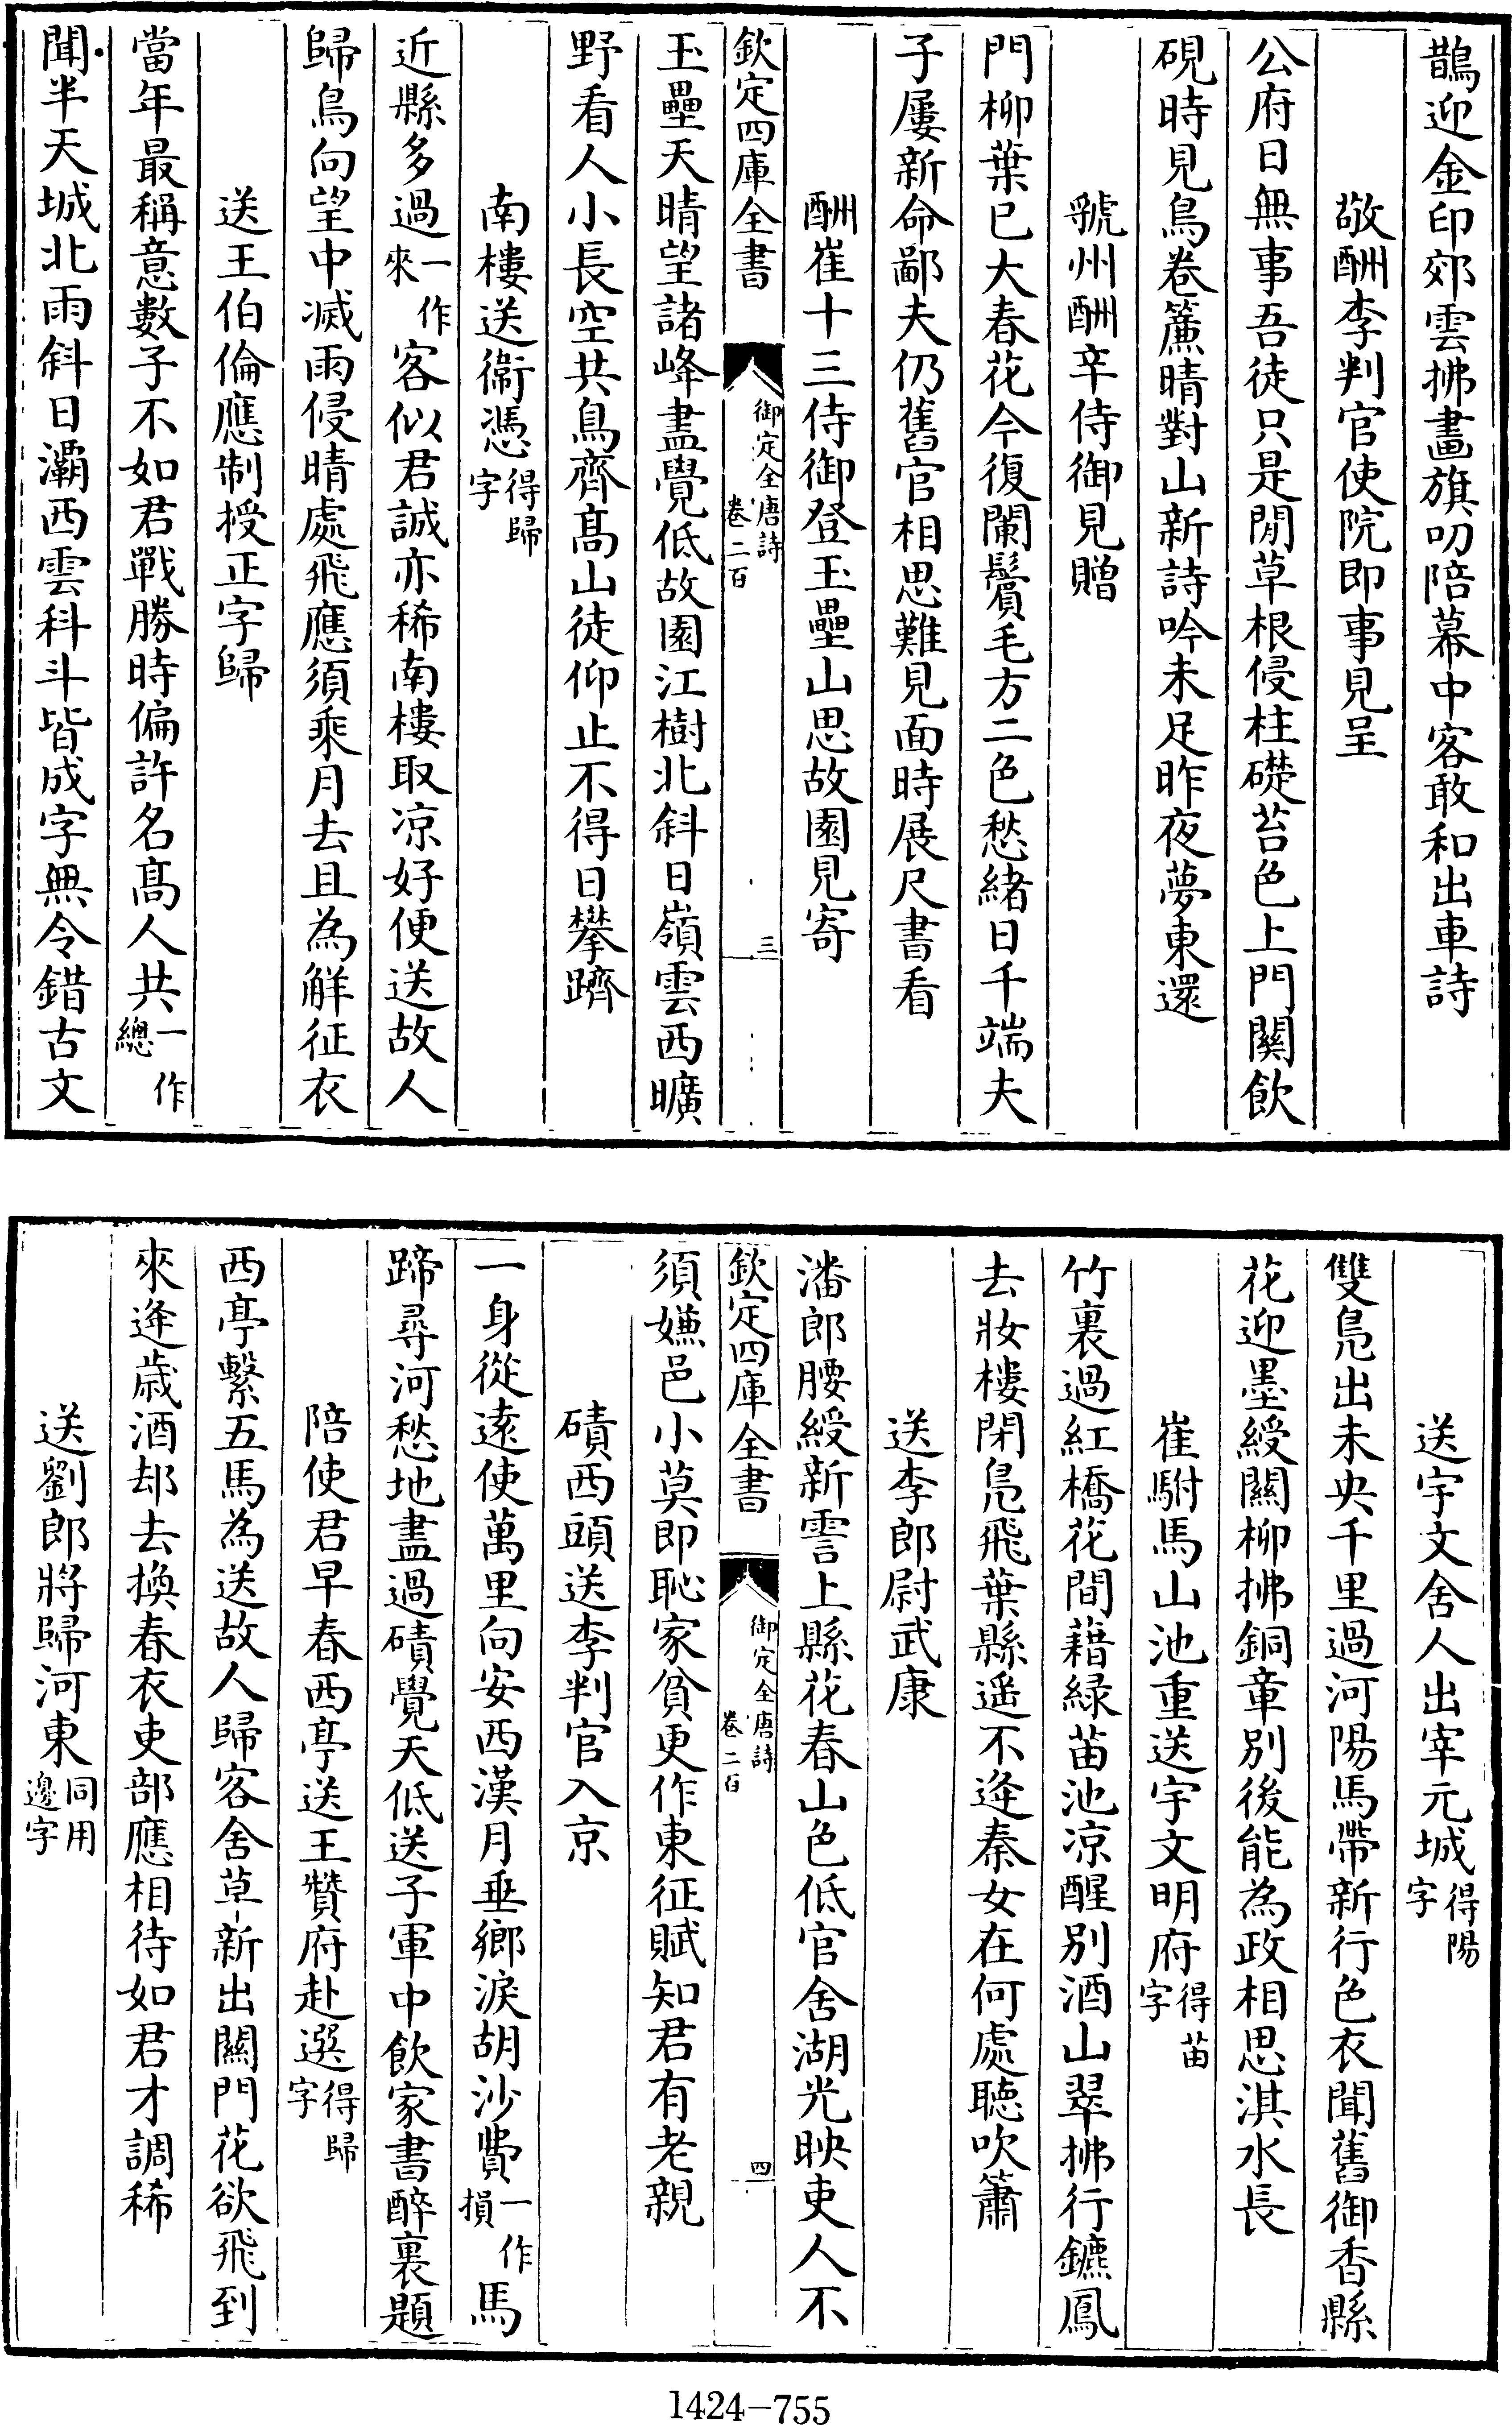 鵲迎金印郊雲拂畫旗叨陪幕中客敢和出車詩
敬酬李判官使院即事見呈
公府日無事吾徒只是閒草根侵柱礎苔色上門關飲
硯時見鳥卷簾晴對山新詩吟未足昨夜夢東還
虢州酬辛侍御見贈
門柳葉已大春花今復闌鬢毛方二色愁緒日千端夫
子屢新命鄙夫仍舊官相思難見面時展尺書看
酬崔十三侍御登玉壘山思故園見寄
欽定四庫全書 御定全唐詩卷二百 三
玉壘天晴望諸峰盡覺低故園江樹北斜日嶺雲西曠
野看人小長空共鳥齊高山徒仰止不得日攀躋
南樓送衛憑得歸字
近縣多過一作來客似君誠亦稀南樓取凉好便送故人
歸鳥向望中滅雨侵晴處飛應須乘月去且為解征衣
送王伯倫應制授正字歸
當年最稱意數子不如君戰勝時偏許名高人共一作總
聞半天城北雨斜日灞西雲科斗皆成字無令錯古文
送宇文舍人出宰元城得陽字
雙鳬出未央千里過河陽馬帶新行色衣聞舊御香縣
花迎墨綬關柳拂銅章別後能為政相思淇水長
崔駙馬山池重送宇文明府得苗字
竹裏過紅橋花間藉緑苗池凉醒別酒山翠拂行鑣鳳
去妝樓閉鳬飛葉縣遥不逄秦女在何處聽吹簫
送李郎尉武康
潘郎腰綬新霅上縣花春山色低官舍湖光映吏人不
欽定四庫全書 御定全唐詩卷二百 四
須嫌邑小莫即恥家貧更作東征賦知君有老親
磧西頭送李判官入京
一身從逺使萬里向安西漢月垂鄉淚胡沙費一作損馬
蹄尋河愁地盡過磧覺天低送子軍中飲家書醉裏題
陪使君早春西亭送王贊府赴選得歸字
西亭繫五馬為送故人歸客舍草新出關門花欲飛到
來逄歲酒却去換春衣吏部應相待如君才調稀
送劉郎將歸河東同用邊字
1424-755